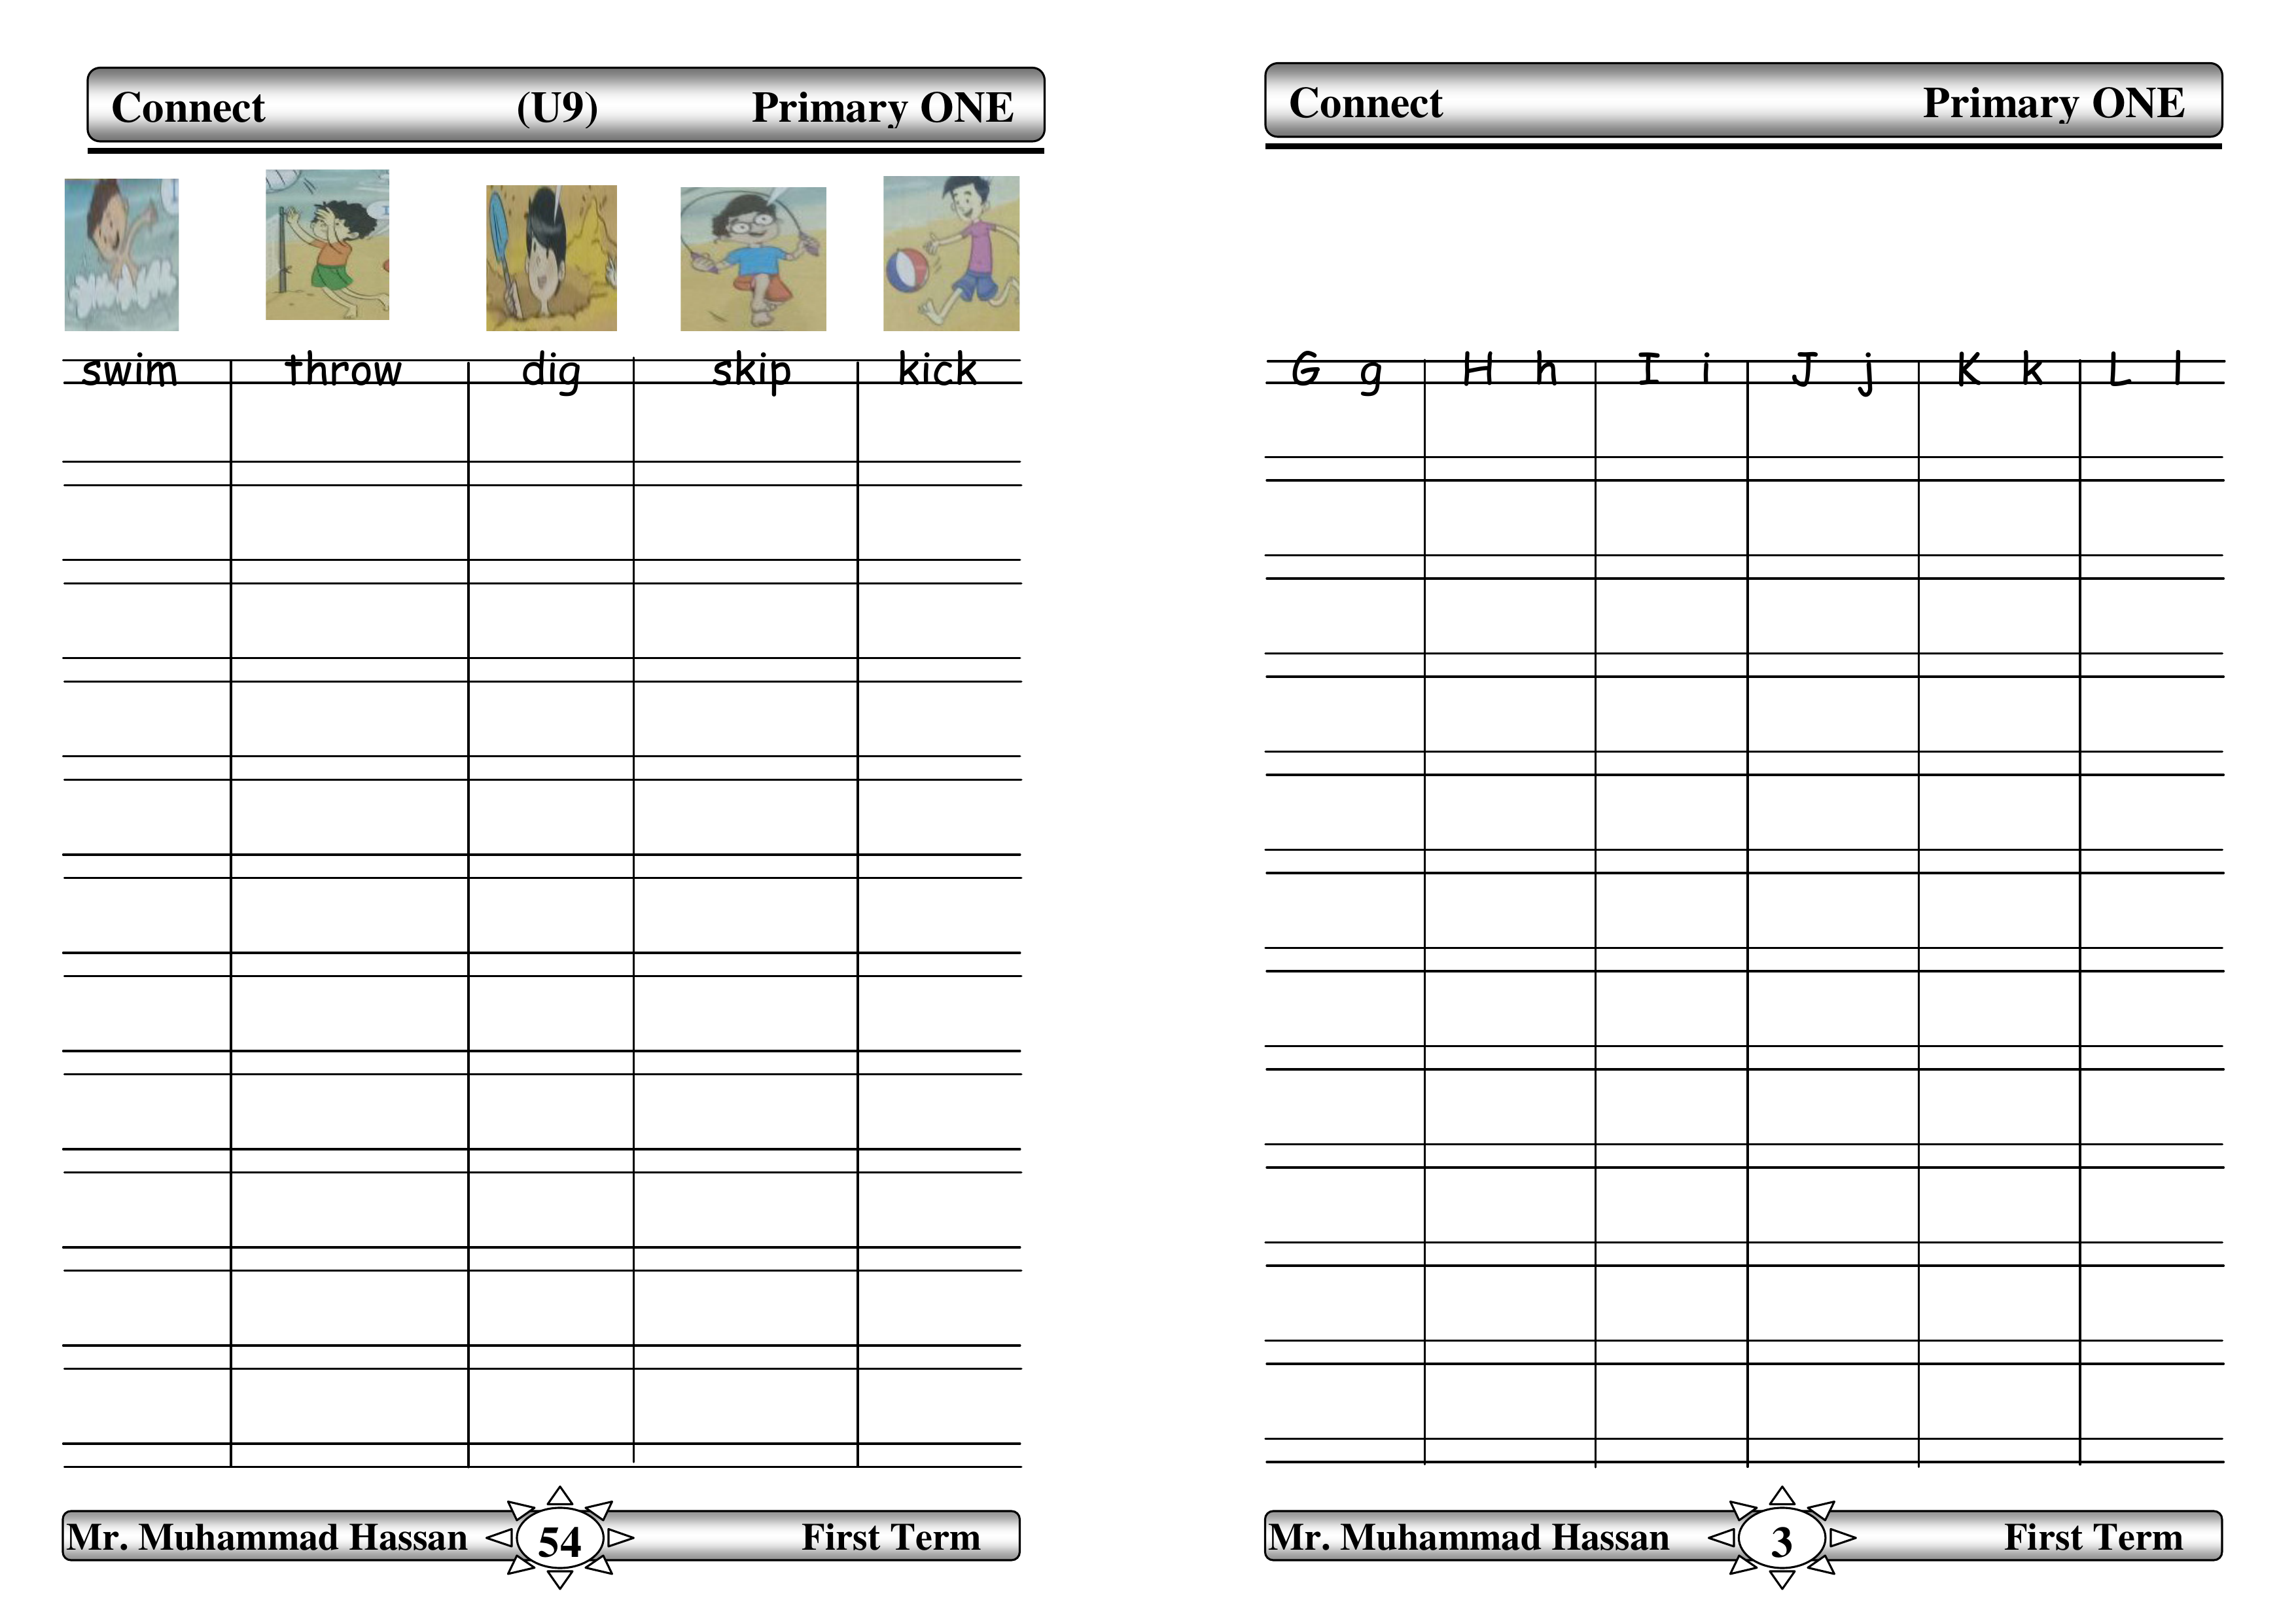 Connect (U9) Primary ONE
swim throw dig skip kick
Mr. Muhammad Hassan 54 First Term
Connect Primary ONE
G g H h I i J j K k L l
Mr. Muhammad Hassan 3 First Term